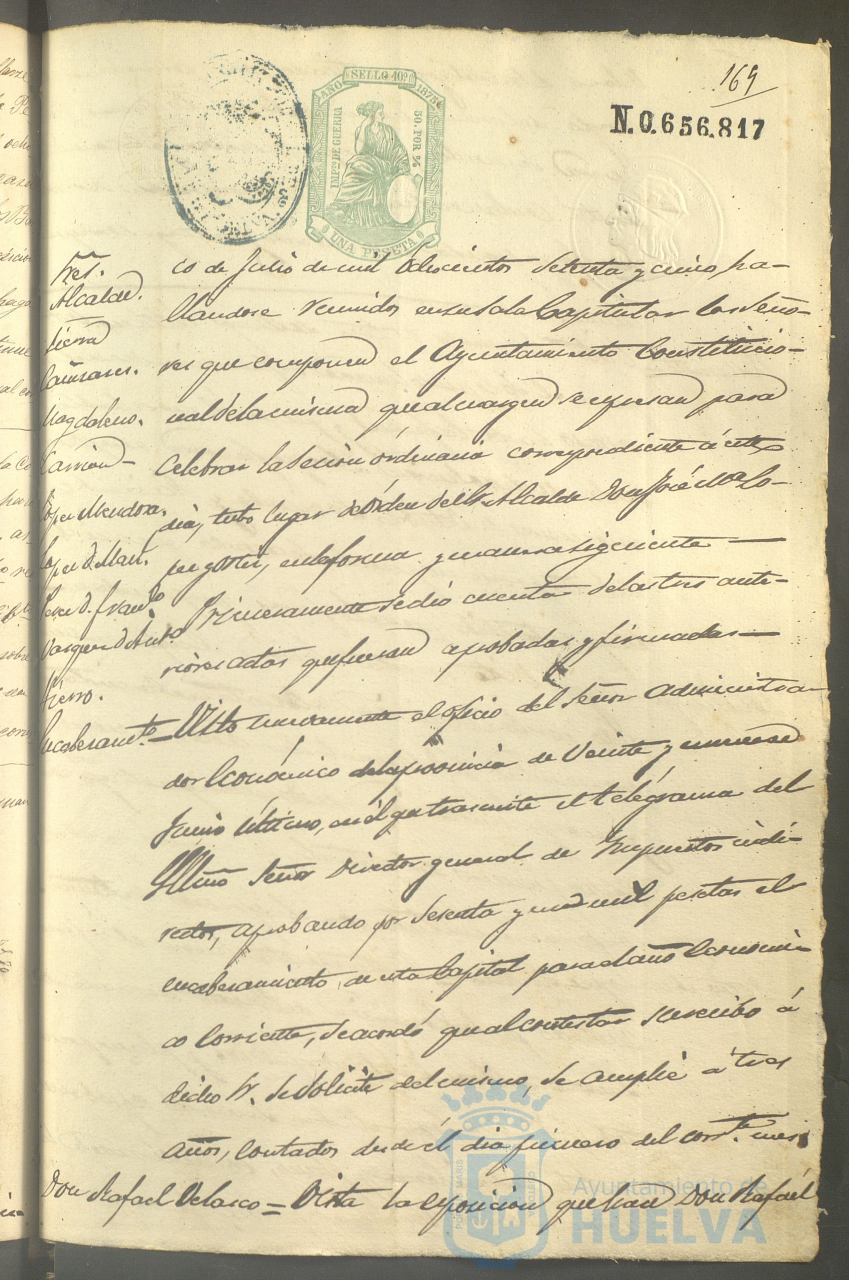 169
N.0.656.817
AÑO SELLO 10º 1875
IMPº DE GUERRA
50 POR %
UNA PESETA
Sres.
Alcalde.
Sierra
Cañizares.
Magdaleno.
Carrion
López Mendoza.
Lopez D. Man.
Perez D. Franco
Vazquez D. Anto
Fierro.
co de Julio de mil ochocientos setenta y cinco ha-
llandose reunidos en su Sala Capitular los Seño-
res que componen el Ayuntamiento Constitucio-
nal de la misma que al margen se espresan para
celebrar la sesion órdinaria correspondiente á este
dia, tubo lugar de órden del Sr Alcalde Don José Ma Lo-
pez y en la forma y manera siguiente
Primeramente se dio cuenta de las tres ante-
riores actas que fueron aprobadas y firmadas
Encabezamto = Visto nuevamente el oficio del Señor Administra-
dor Económico de la provincia de Veinte y nueve de
Junio último, en él que trasmite el telégrama del
Yllmo Señor Director general de Impuestos indi-
rectos, aprobando por sesenta y un mil pesetas el
encabezamiento de esta Capital para el año Economi-
co corriente, se acordó que al contestar su recibo á
dicho Sr. se solicite del mismo, se amplie á tres
años, contados desde él dia primero del corrte mes
Don Rafael Velasco = Vista la esposicion que hace Don Rafael
Ayuntamiento de
HUELVA